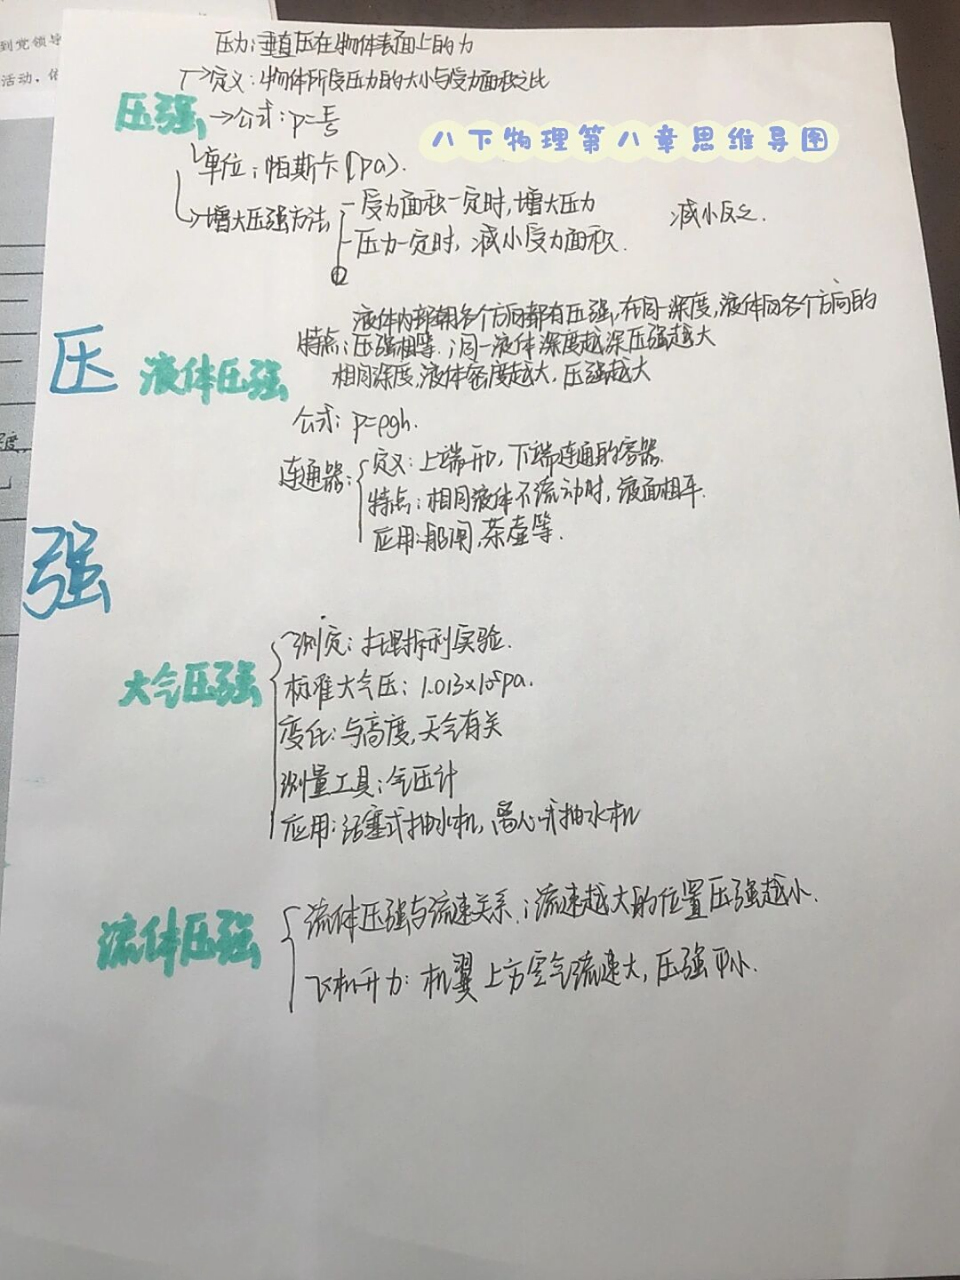 到党领导
活动,
压力:垂直压在物体表面上的力
定义:物体所受压力的大小与受力面积之比
压强
公式:p=F/S
八下物理第八章思维导图
单位:帕斯卡(pa).
增大压强方法
受力面积一定时,增大压力
减小反之.
压力一定时,减小受力面积.
压
强
液体压强
液体内部朝各个方向都有压强,在同一深度,液体向各个方向的
特点:压强相等.;同一液体深度越深压强越大
相同深度,液体密度越大,压强越大
公式:p=ρgh.
连通器:
定义:上端开口,下端连通的容器.
特点:相同液体不流动时,液面相平.
应用:船闸,茶壶等.
大气压强
测定:托里拆利实验.
标准大气压:1.013×10⁵pa.
变化:与高度,天气有关
测量工具:气压计
应用:活塞式抽水机,离心式抽水机
流体压强
流体压强与流速关系.;流速越大的位置压强越小.
飞机升力:机翼上方空气流速大,压强小.